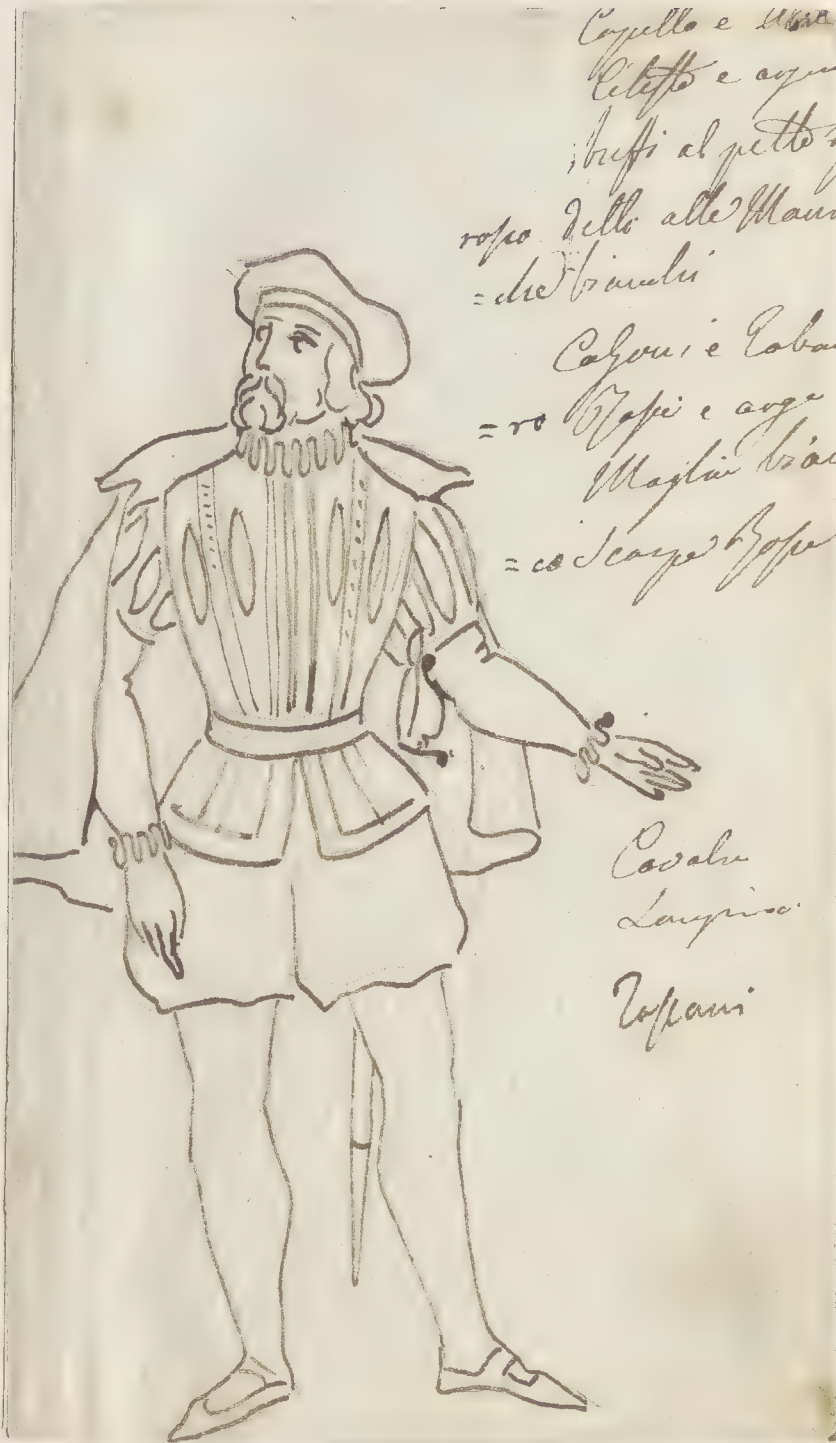 Capello e
Celeste e argen
sbuffi al petto
rosso delli alle Mani
=che bianchi
Calzoni e Tabar
=ro Rossi e arge
Maglie bian
=ce Scarpe Rosse
Cavalre

Tossani